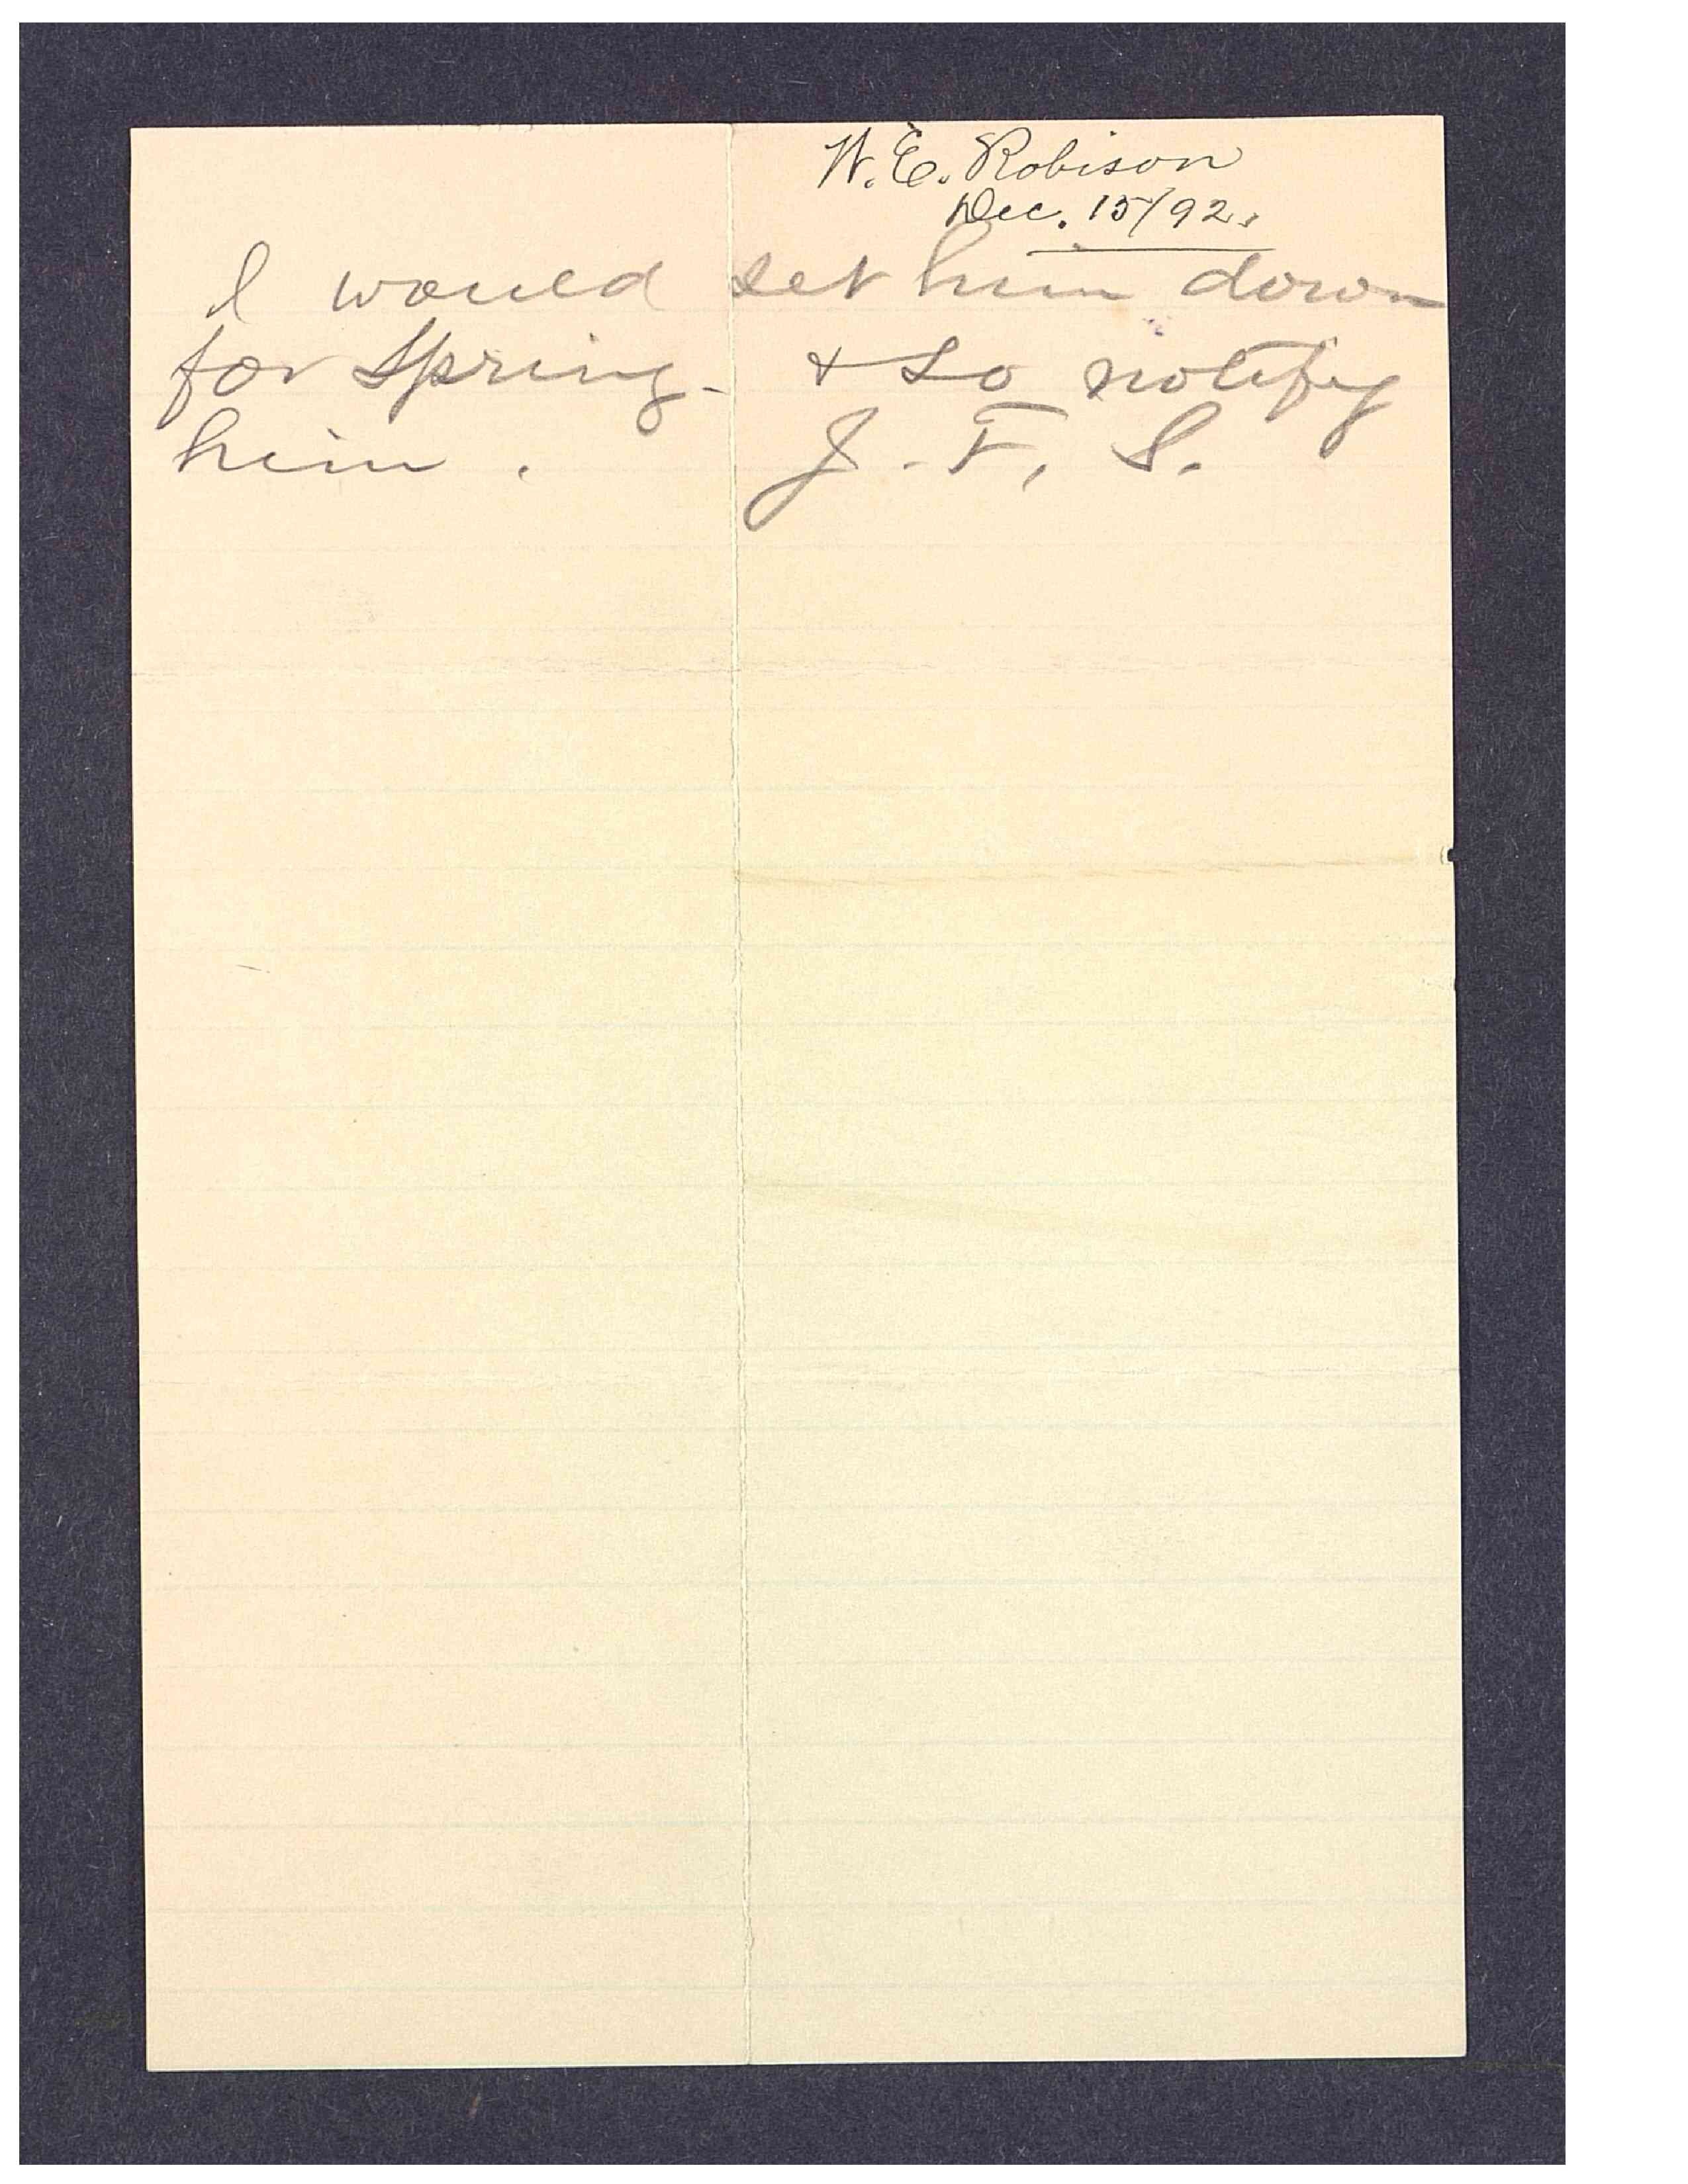 W. E. Robison
Dec. 15/92.
I would set him down
for Spring - & so notify
him. J. F. S.